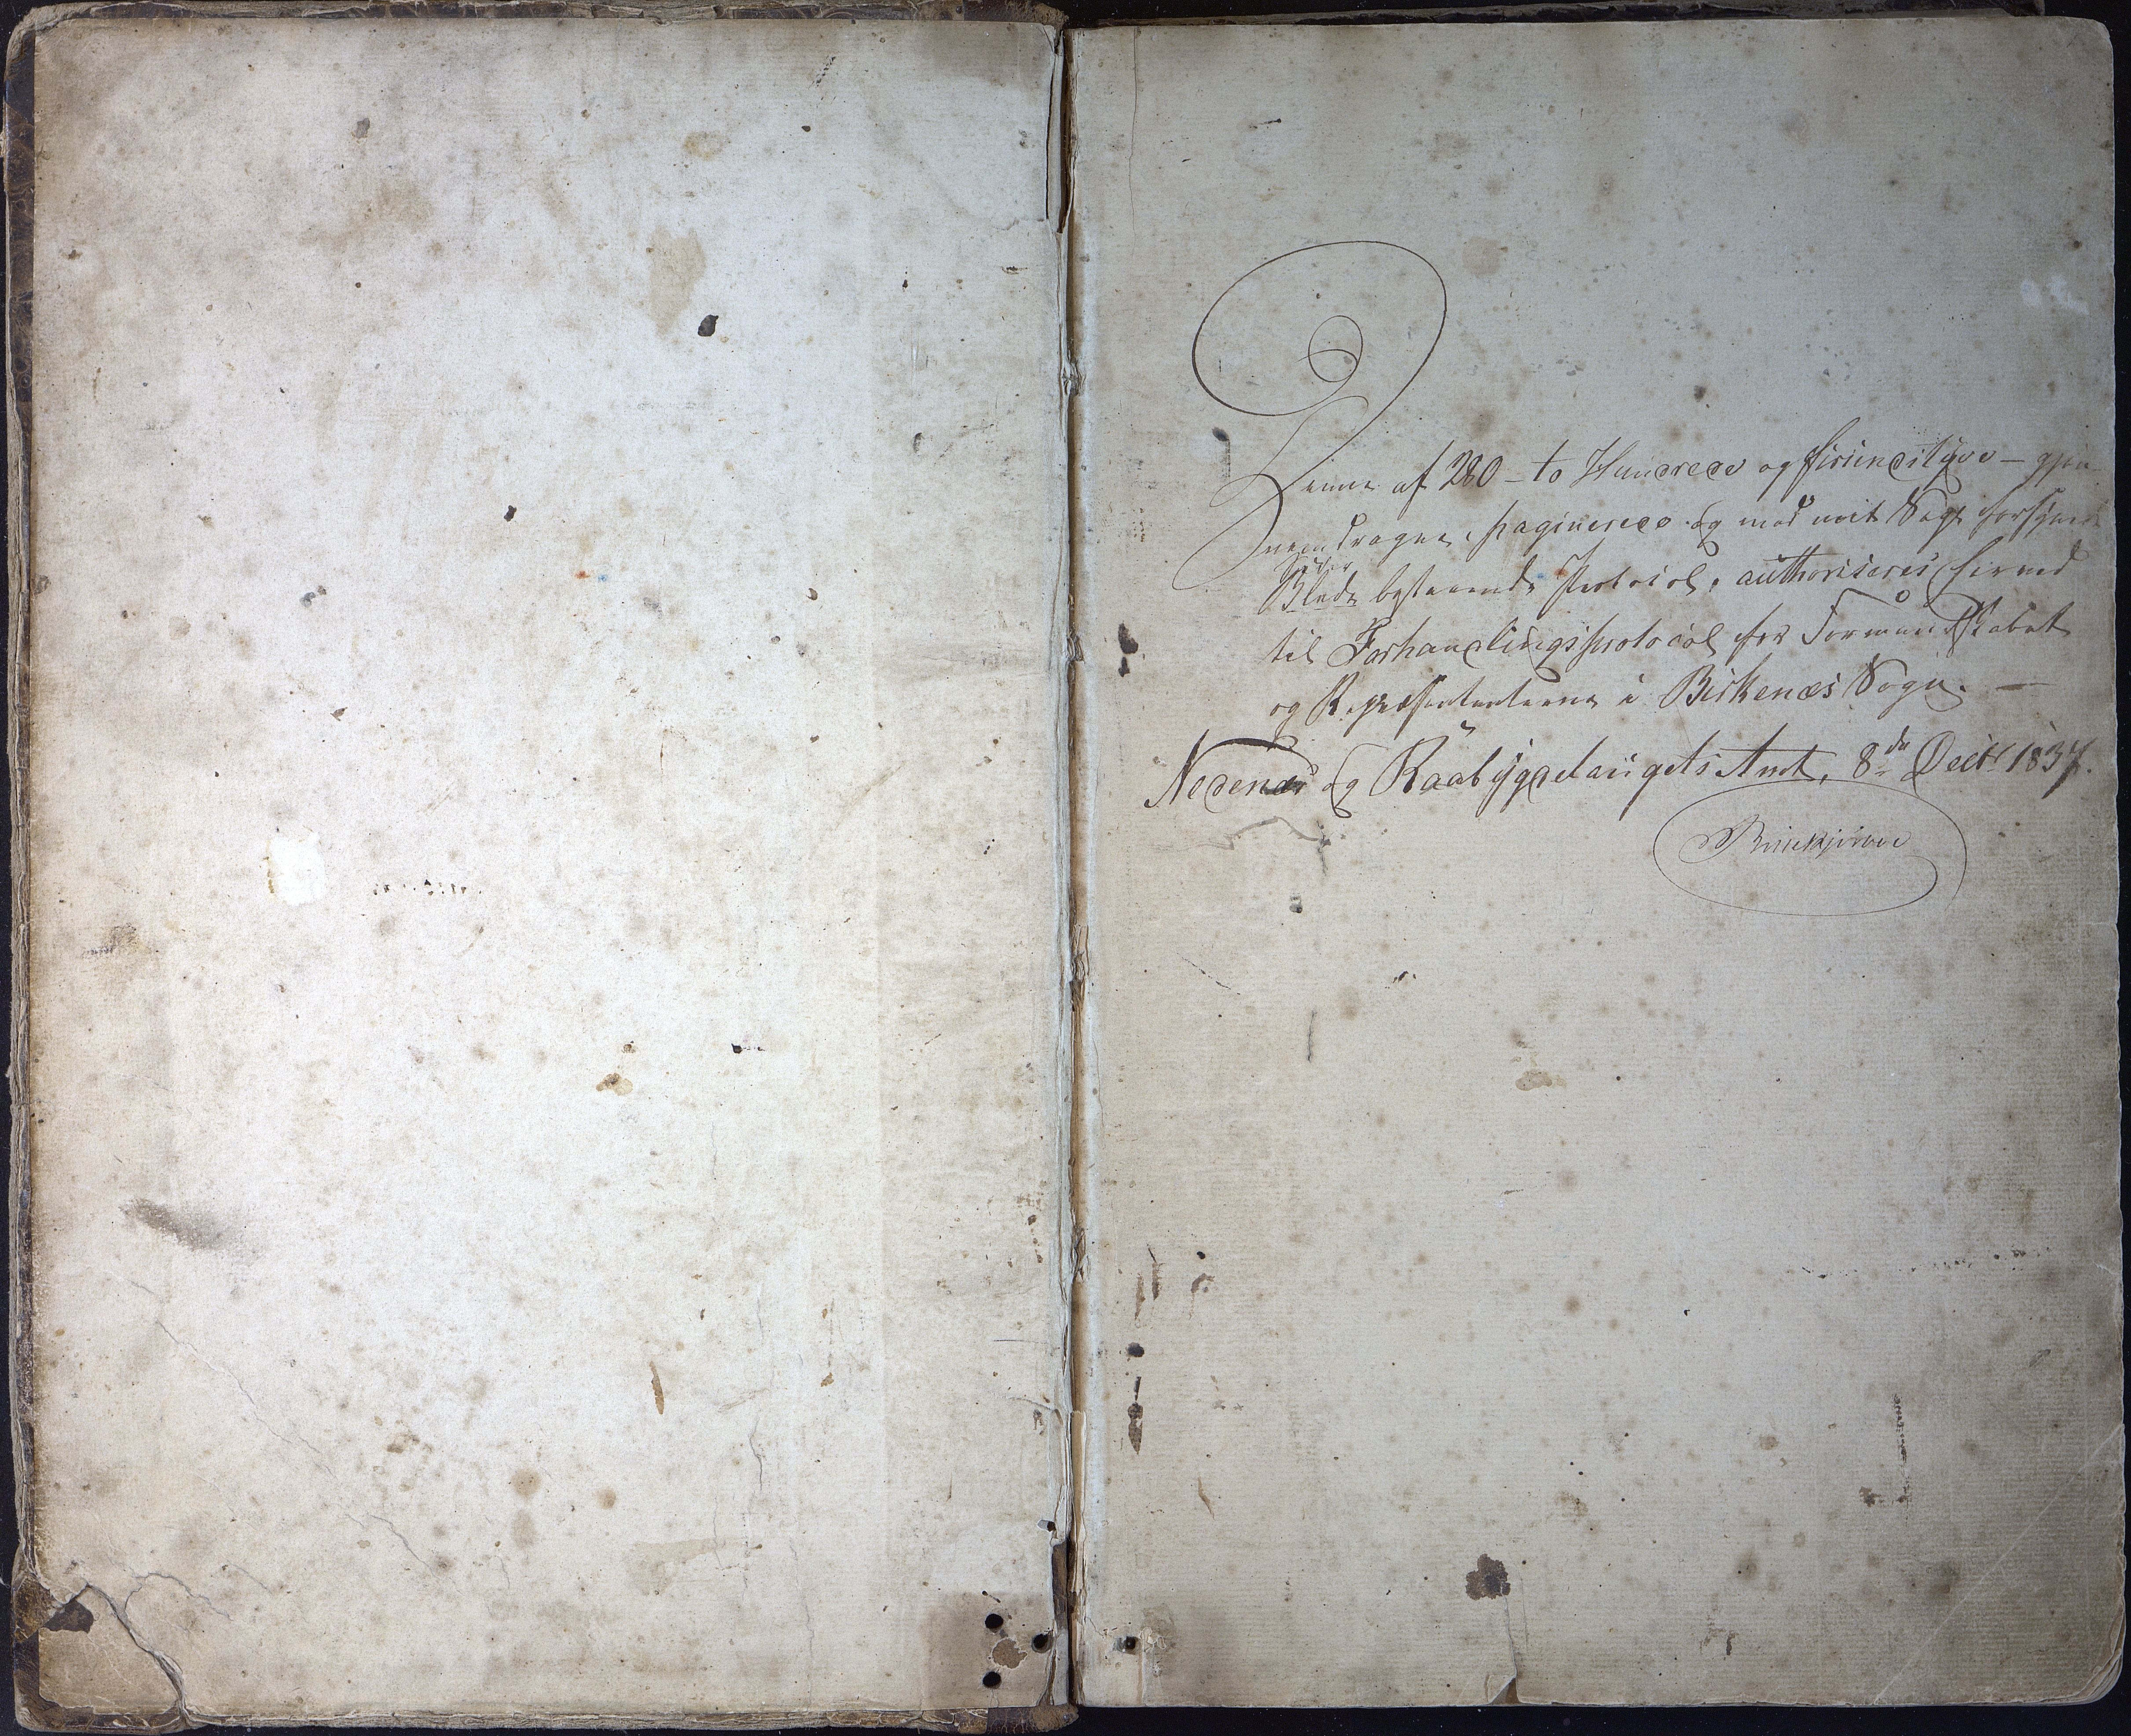 Denne af 280 – to Hundrede og firsindstyve – gjen-
nemdragne, paginerede og med mit Segl forsynede
Sider
Blade bestaaende Protocol, authoriseres hermed
til Forhandlingsprotocol for Formandskabet
og Repræsentanterne i Birkenæs Sogn. —
Nedenæs og Raabygdelaugets Amt, 8de Decbr 1837.